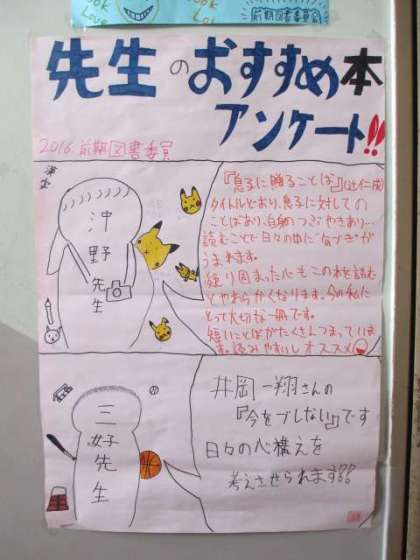 ook
Love
Book
Lov
前期図書委員会
先生のおすすめ本
アンケート!!
2016.前期図書委員
沖野先生
『息子に贈ることば』(辻仁成)
タイトルどおり、息子に対しての
ことばあり、自身のつぶやきあり…
読むことで日々の中に"気づき"が
うまれます。
凝り固まった心もこの本を読む
とやわらかくなります。今の私に
とって大切な一冊です。
短いことばがたくさんつまっていま
す。読みやすいしオススメ
三好先生
井岡一翔さんの
『今をブレない』です
日々の心構えを
考えさせられます!!